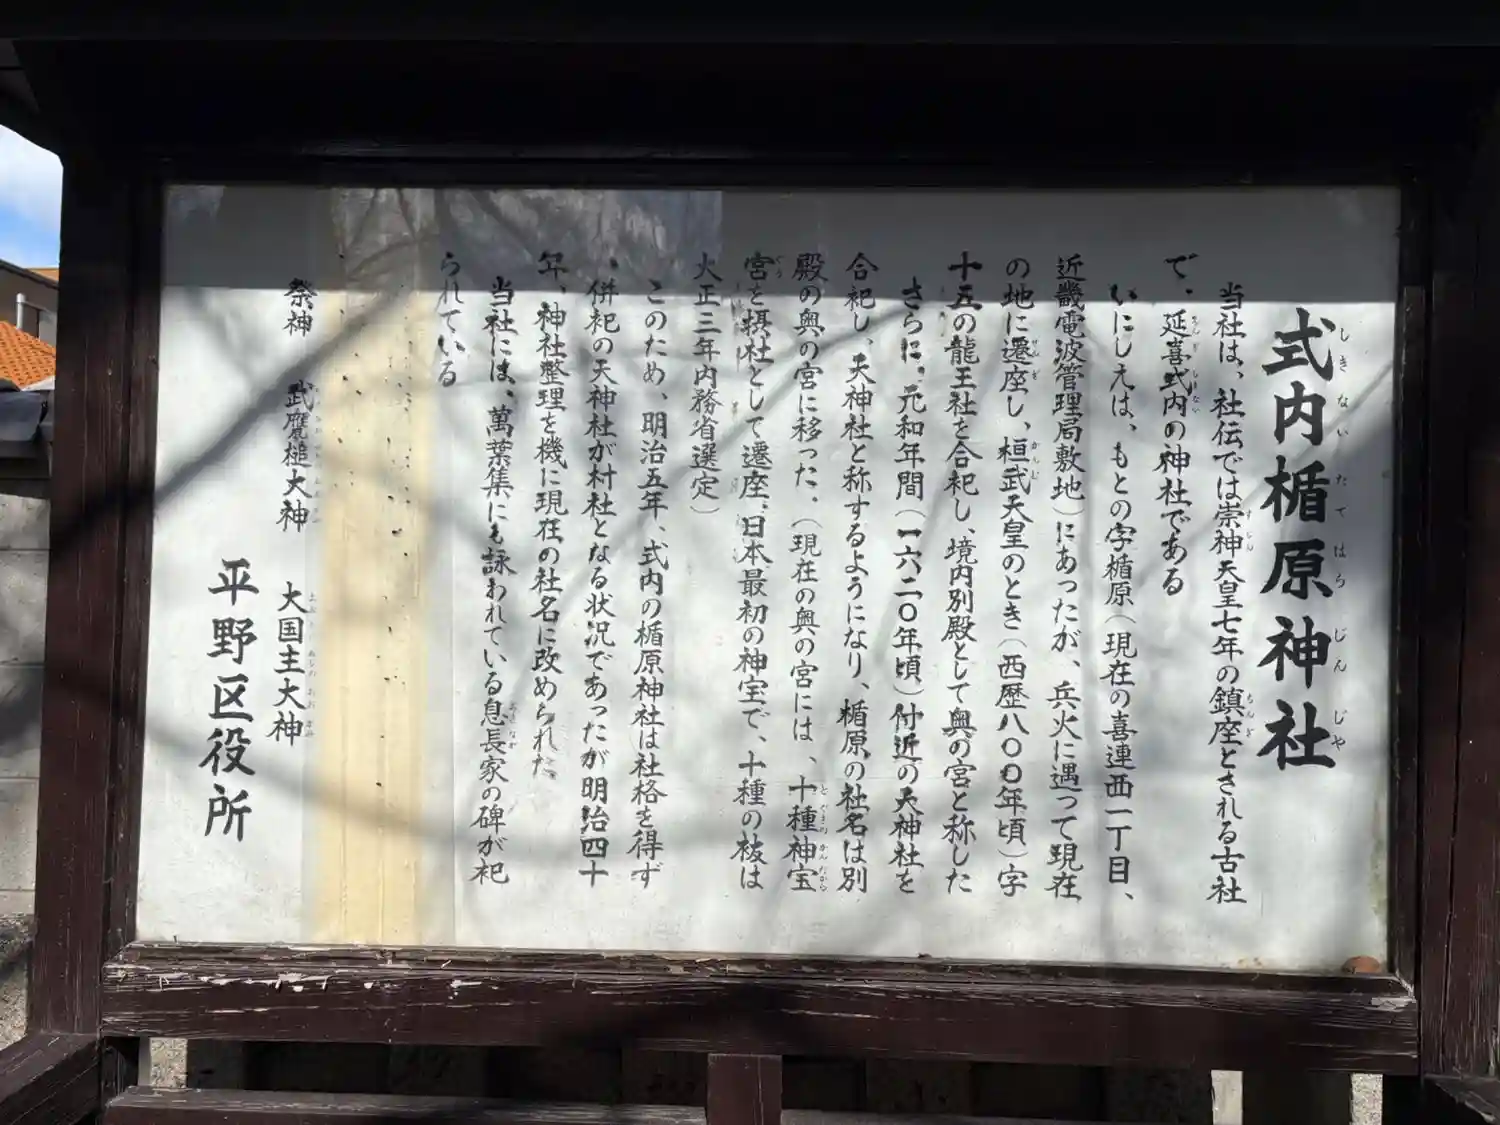 式内楯原神社
当社は、社伝では崇神天皇七年の鎮座とされる古社
で、延喜式内の神社である
いにしえは、もとの字楯原（現在の喜連西一丁目、
近畿電波管理局敷地）にあったが、兵火に遇って現在
の地に遷座し、桓武天皇のとき（西歴八〇〇年頃）字
十五の龍王社を合祀し、境内別殿として奥の宮と称した
さらに、元和年間（一六二〇年頃）付近の天神社を
合祀し、天神社と称するようになり、楯原の社名は別
殿の奥の宮に移った、（現在の奥の宮には、十種神宝
宮を摂社として遷座、日本最初の神宝で、十種の祓は
大正三年内務省選定）
このため、明治五年、式内の楯原神社は社格を得ず
、併祀の天神社が村社となる状況であったが明治四十
年、神社整理を機に現在の社名に改められた
当社には、萬葉集にも詠われている息長家の碑が祀
られている
祭神 武甕槌大神 大国主大神
平野区役所